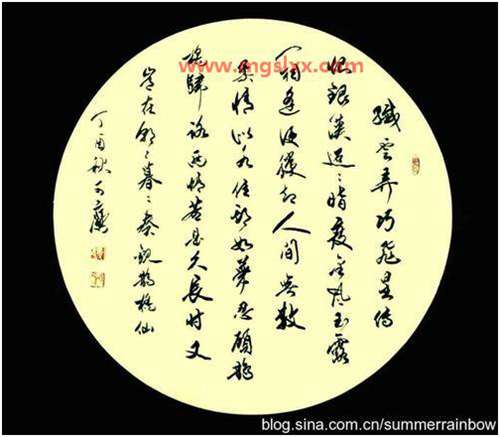 www.mgslxx.com
纖云弄巧飛星傳
恨銀漢迢〻暗度金風玉露
一相逢便勝卻人間無數
柔情似水佳期如夢忍顧鵲
橋歸路兩情若是久長時又
豈在朝〻暮〻秦觀鵲橋仙
丁酉秋
blog.sina.com.cn/summerrainbow